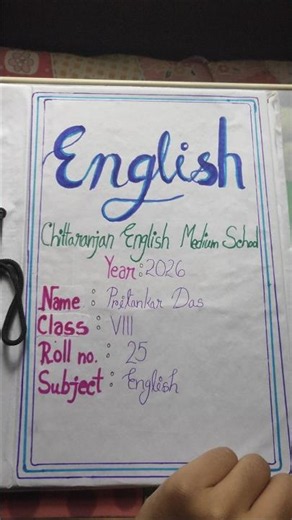 English
Chittaranjan English Medium School
Year : 2026
Name : Pritankar Das
Class : VIII
Roll no. : 25
Subject : English